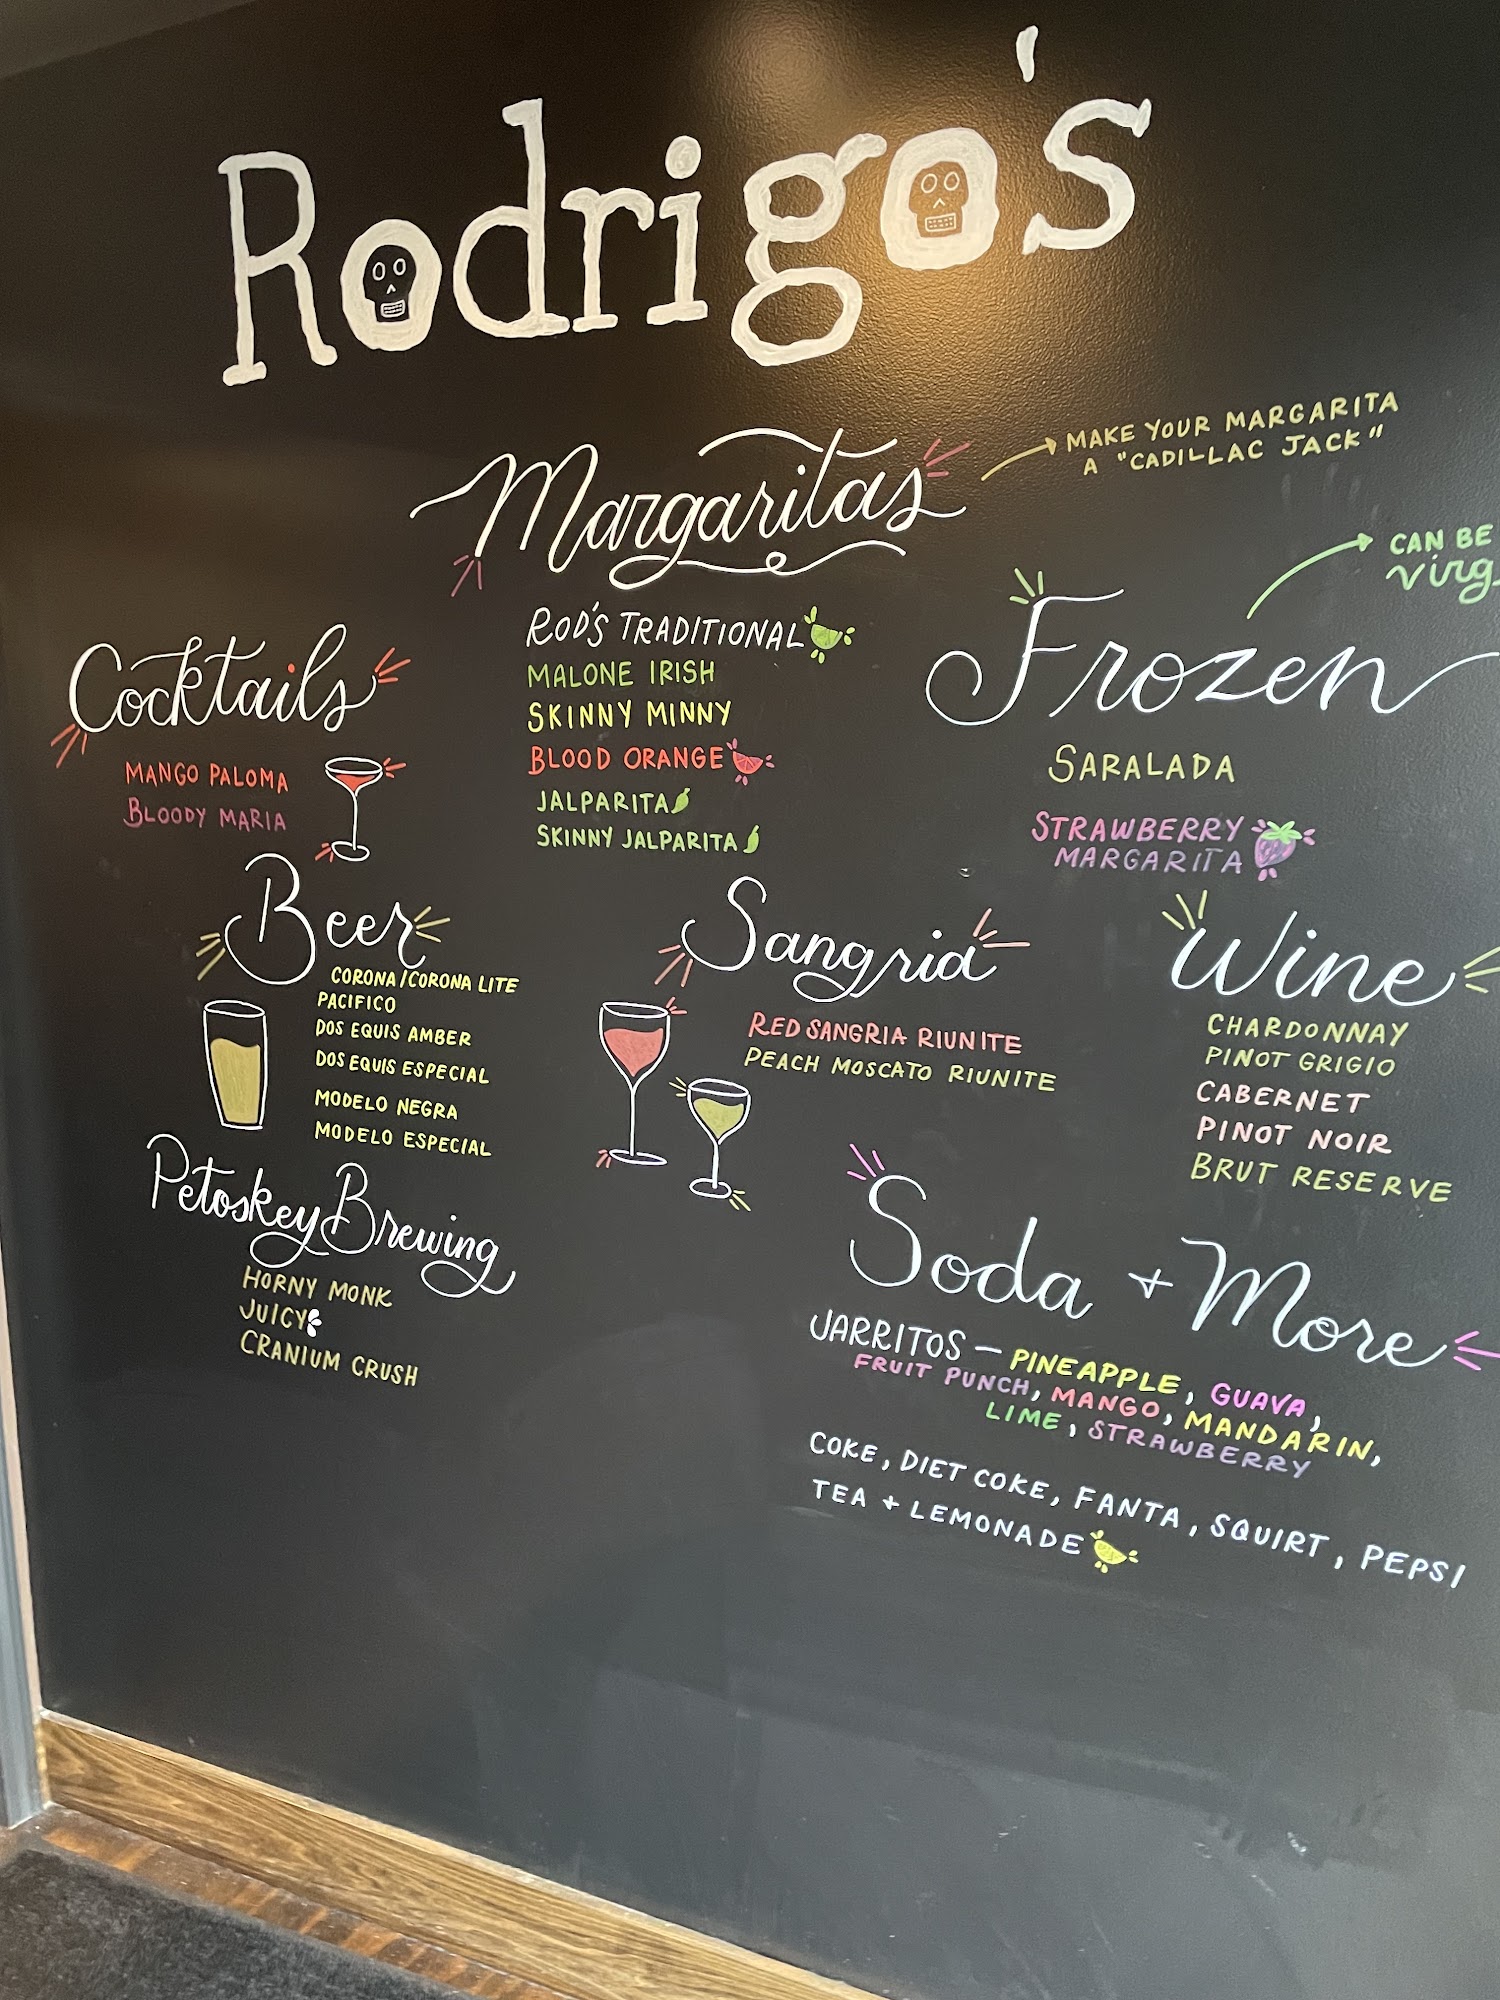 Rodrigo's
Margaritas
MAKE YOUR MARGARITA
A "CADILLAC JACK"
ROD'S TRADITIONAL
MALONE IRISH
SKINNY MINNY
BLOOD ORANGE
JALPARITA
SKINNY JALPARITA
CAN BE
Frozen
SARALADA
STRAWBERRY
MARGARITA
Cocktails
MANGO PALOMA
BLOODY MARIA
Beer
CORONA/CORONA LITE
PACIFICO
DOS EQUIS AMBER
DOS EQUIS ESPECIAL
MODELO NEGRA
MODELO ESPECIAL
Petoskey Brewing
HORNY MONK
JUICY
CRANIUM CRUSH
Sangria
RED SANGRIA RIUNITE
PEACH MOSCATO RIUNITE
Wine
CHARDONNAY
PINOT GRIGIO
CABERNET
PINOT NOIR
BRUT RESERVE
Soda + More
JARRITOS - PINEAPPLE, GUAVA,
FRUIT PUNCH, MANGO, MANDARIN,
LIME, STRAWBERRY
COKE, DIET COKE, FANTA, SQUIRT, PEPSI
TEA + LEMONADE